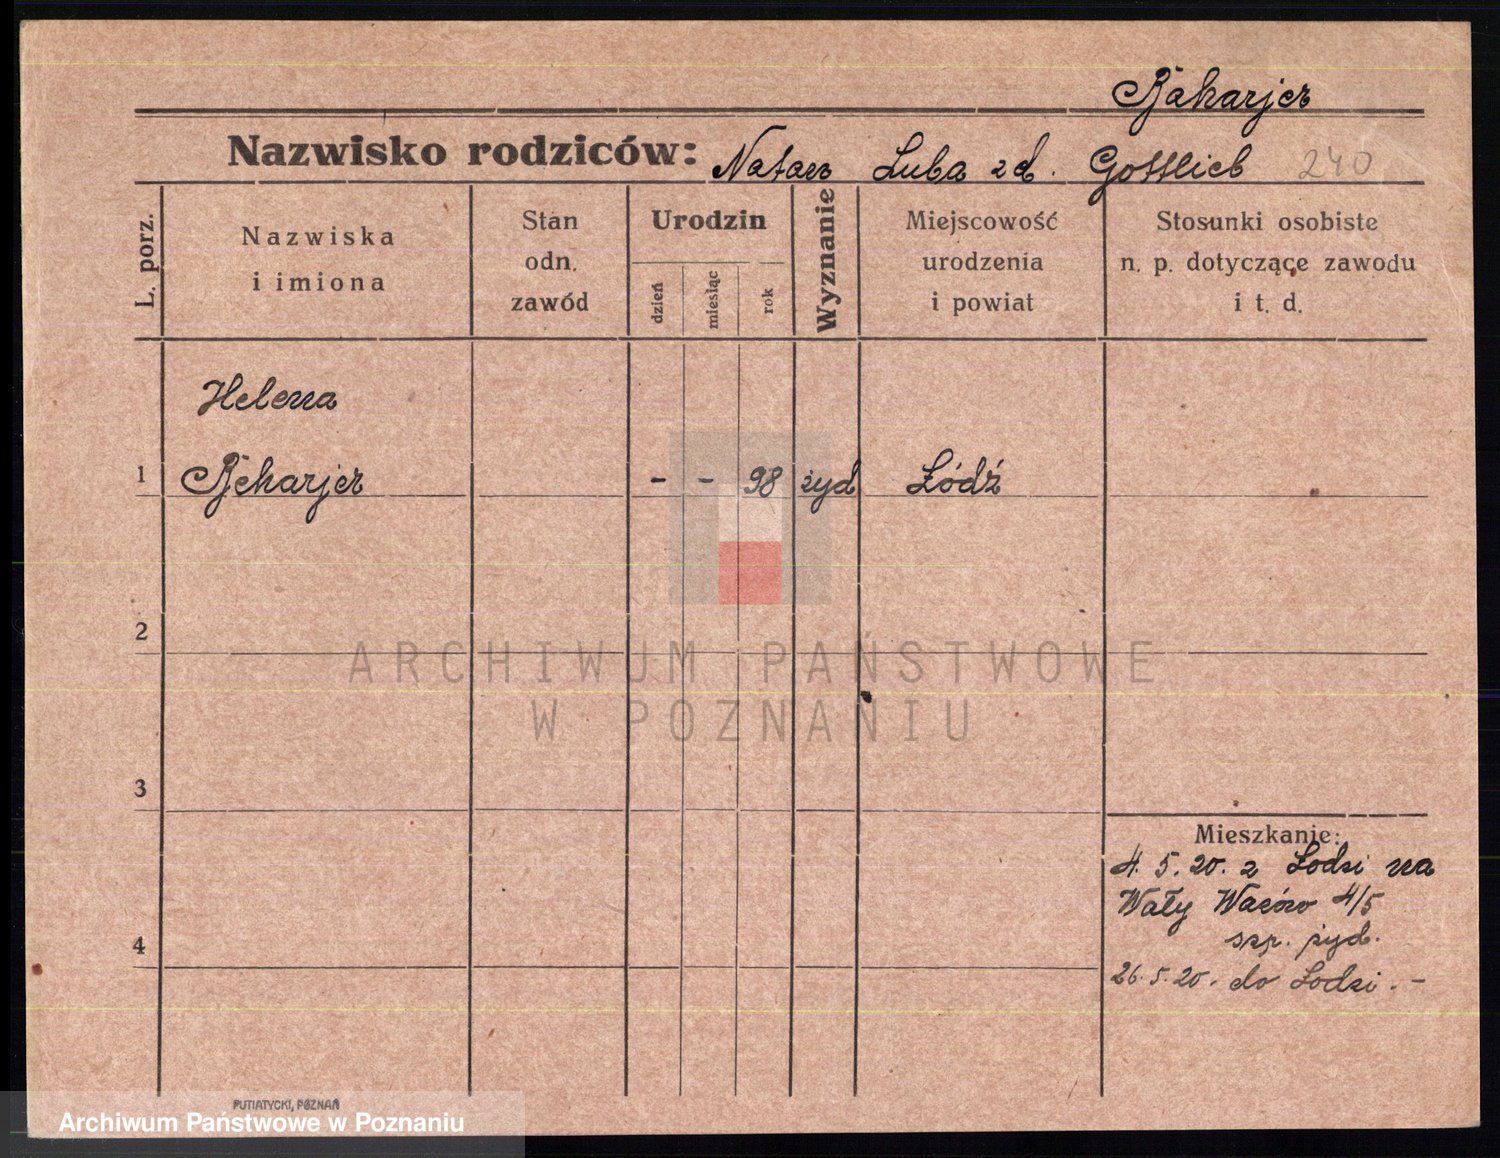 Bakarjer
Nazwisko rodziców: Natan Luba z d. Gottlieb 240
L. porz.
Nazwiska
i imiona
Stan
odn.
zawód
Urodzin
dzień
miesiąc
rok
Wyznanie
Miejscowość
urodzenia
i powiat
Stosunki osobiste
n. p. dotyczące zawodu
i t. d.
Helena
1 Bekarjer - - 98 żyd Łódź
2
ARCHIWUM PAŃSTWOWE
W POZNANIU
3
Mieszkanie:
4. 5. 20. z Łodzi na
Wały Wazów 4/5
szp. żyd.
4
26. 5. 20. do Łodzi. -
PUTIATYCKI, POZNAŃ
Archiwum Państwowe w Poznaniu